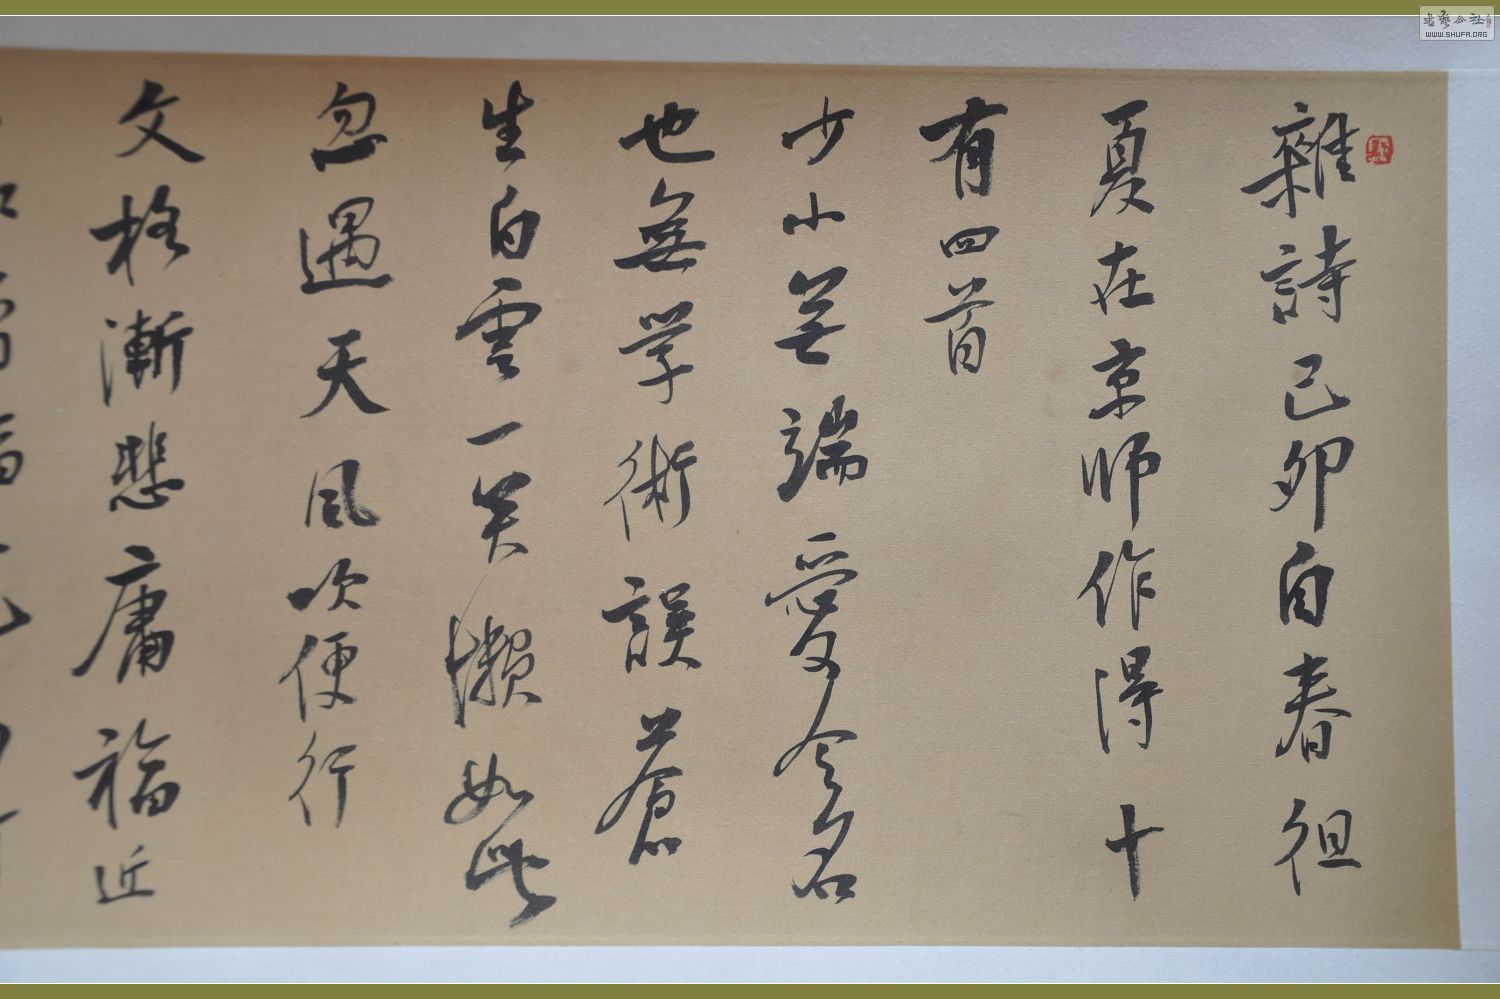 雜詩己卯自春徂
夏在京師作得十
有四首
少小無端愛令名
也無学術誤蒼
生白雲一笑懶如此
忽遇天風吹便行
文格漸悲庸福近
書藝公社
WWW.SHUFA.ORG